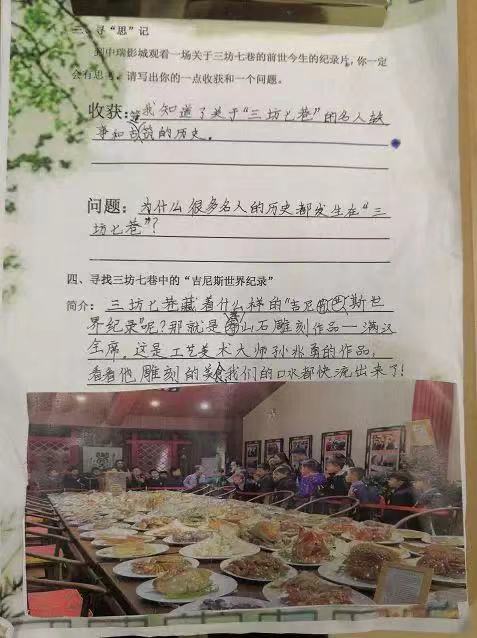 三、寻“思”记
到中瑞影城观看一场关于三坊七巷的前世今生的纪录片，你一定
会有思考。请写出你的一点收获和一个问题。
收获：我知道了关于“三坊七巷”的名人轶
事和古筑的历史。
问题：为什么很多名人的历史都发生在“三
坊七巷”？
四、寻找三坊七巷中的“吉尼斯世界纪录”
简介：三坊七巷藏着什么样的“吉尼斯世
界纪录”呢？那就是寿山石雕刻作品—满汉
全席，这是工艺美术大师孙兆勇的作品，
看看他雕刻的美食我们的口水都快流出来了！